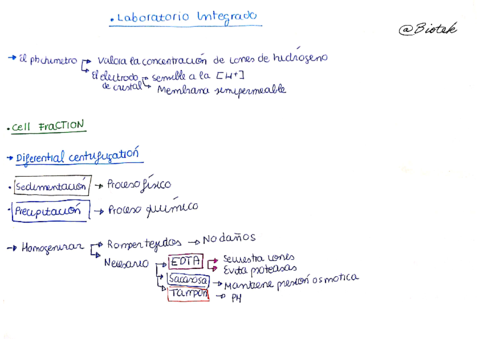 . Laboratorio Integrado
@Biotek
→ El phchimetro → Valora la concentración de iones de hidrógeno
El electrodo de cristal → Sensible a la [H+]
→ Membrana semipermeable
. Cell FRACTION
→ Diferential centrifugation
. Sedimentación → Proceso físico
. Precipitación → Proceso químico
→ Homogenizar → Romper tejidos → No daños
Necesario → EDTA → Secuestra iones
→ Evita proteasas
→ Sacarosa → Mantiene presión osmotica
→ Tampón → PH